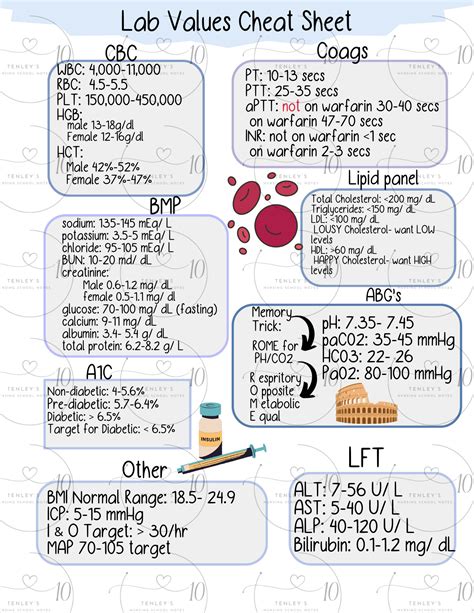 Lab Values Cheat Sheet
CBC
WBC: 4,000-11,000
RBC: 4.5-5.5
PLT: 150,000-450,000
HGB:
male 13-18g/dl
Female 12-16g/dl
HCT:
Male 42%-52%
Female 37%-47%
Coags
PT: 10-13 secs
PTT: 25-35 secs
aPTT: not on warfarin 30-40 secs
on warfarin 47-70 secs
INR: not on warfarin <1 sec
on warfarin 2-3 secs
BMP
sodium: 135-145 mEq/ L
potassium: 3.5-5 mEq/ L
chloride: 95-105 mEq/ L
BUN: 10-20 md/ dL
creatinine:
Male 0.6-1.2 mg/ dl
female 0.5-1.1 mg/ dL
glucose: 70-100 mg/ dL (fasting)
calcium: 9-11 mg/ dL
albumin: 3.4- 5.4 mg/ dL
total protein: 6.2-8.2 g/ L
Lipid panel
Total Cholesterol: <200 mg/ dL
Triglycerides: <150 mg/ dL
LDL: <100 mg/ dL
LOUSY Cholesterol- want LOW
levels
HDL: >60 mg/ dL
HAPPY Cholesterol- want HIGH
levels
ABG's
Memory
Trick:
ROME for
PH/CO2
R espritory
O pposite
M etabolic
E qual
pH: 7.35- 7.45
paCO2: 35-45 mmHg
HCO3: 22- 26
PaO2: 80-100 mmHg
A1C
Non-diabetic: 4-5.6%
Pre-diabetic: 5.7-6.4%
Diabetic: > 6.5%
Target for Diabetic: < 6.5%
INSULIN
Other
BMI Normal Range: 18.5- 24.9
ICP: 5-15 mmHg
I & O Target: > 30/hr
MAP 70-105 target
LFT
ALT: 7-56 U/ L
AST: 5-40 U/ L
ALP: 40-120 U/ L
Bilirubin: 0.1-1.2 mg/ dL
TENLEY'S
NURSING SCHOOL NOTES
10